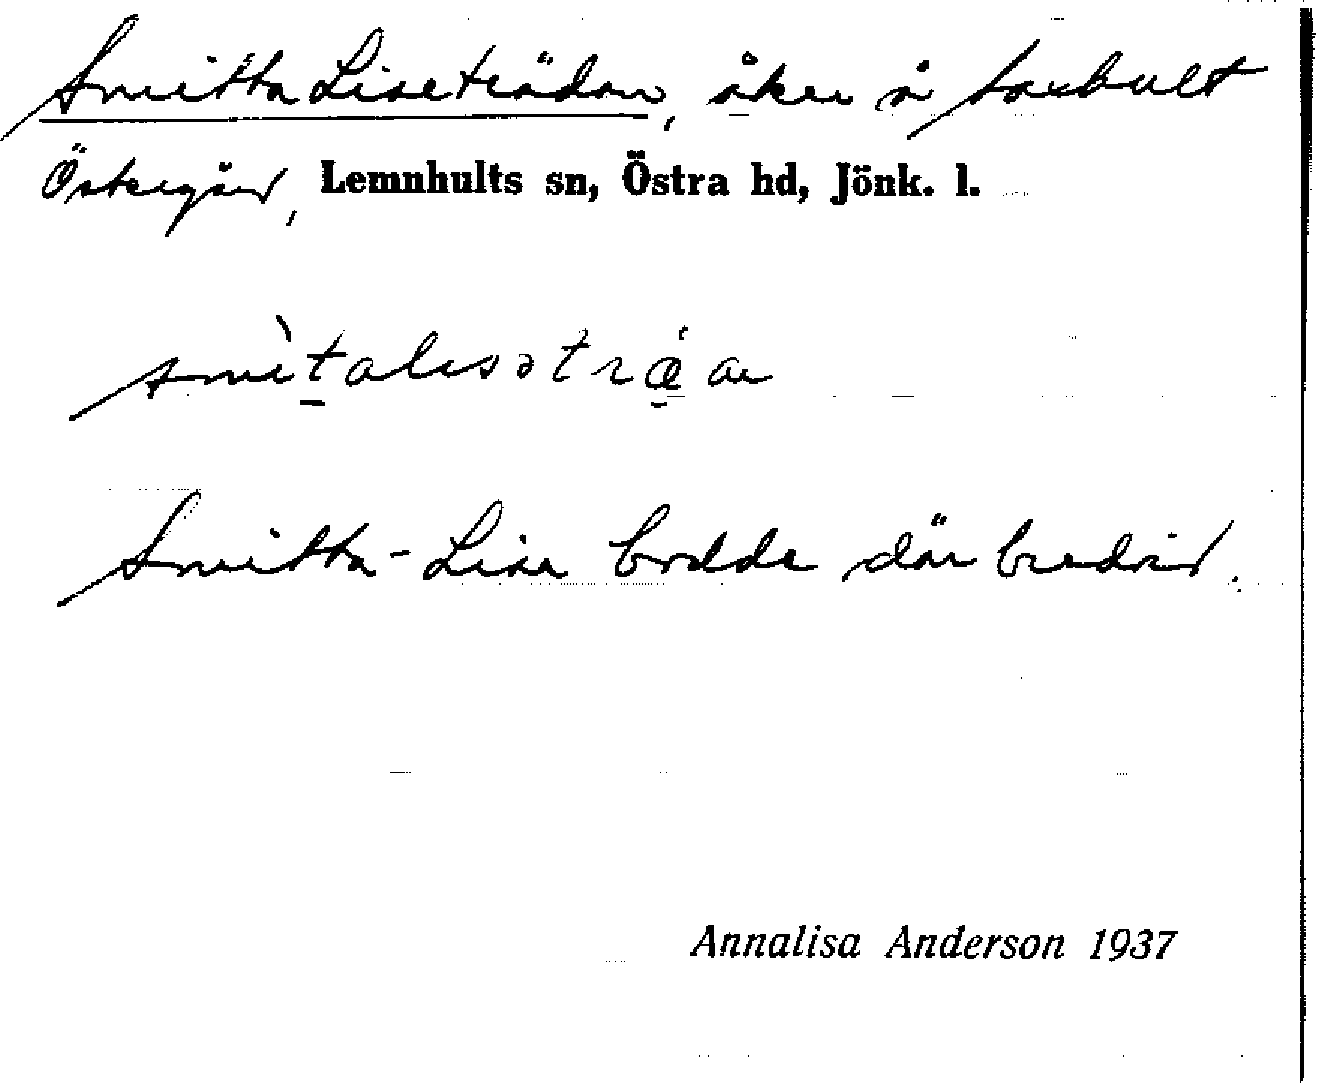 Smitta Liseträdan, åker å Saxhult
Östergård, Lemnhults sn, Östra hd, Jönk. l.
smìtalisətrǽan
Smitta-Lisa bodde där bredvid.
Annalisa Anderson 1937